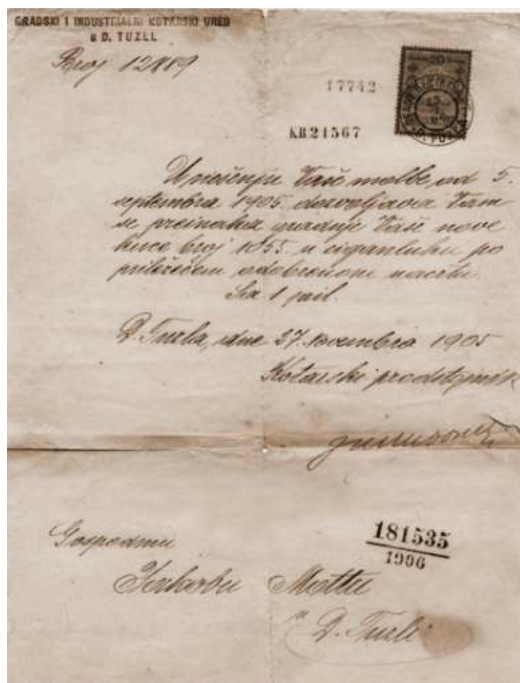 GRADSKI I INDUSTRIALNI KOTARSKI URED
u D. TUZLI.
Broj 12889
17742
KB 21567
U riešenju Vaše molbe od 5.
septembra 1905. dozvoljava Vam
se preinaka gradnje Vaše nove
kuće broj 1055. u ciganluku po
priležećem odobrenom nacrtu
Sa 1 pril.
D. Tuzla, dne 27. novembra 1905
Kotarski predstojnik
Gospodinu
181535
1906
Mottu
D. Tuzli